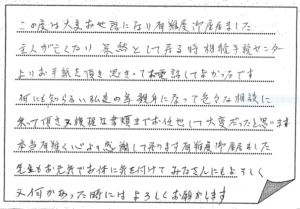 この度は大変お世話になり有難度御座居ました
主人が亡くなり 呆然として居る時 相続手続センター
よりお手紙を頂き 思いきってお電話してよかったです
何にも知らない私達の為 親身になって色々な相談に
乗って頂き 又複雑な書類までお任せして大変だったと思います
本当に有難く心より感謝して居ります有難度御座居ました
先生もお元気でお体に気を付けて みなさんにもよろしく
又何かあった時には よろしくお願いします